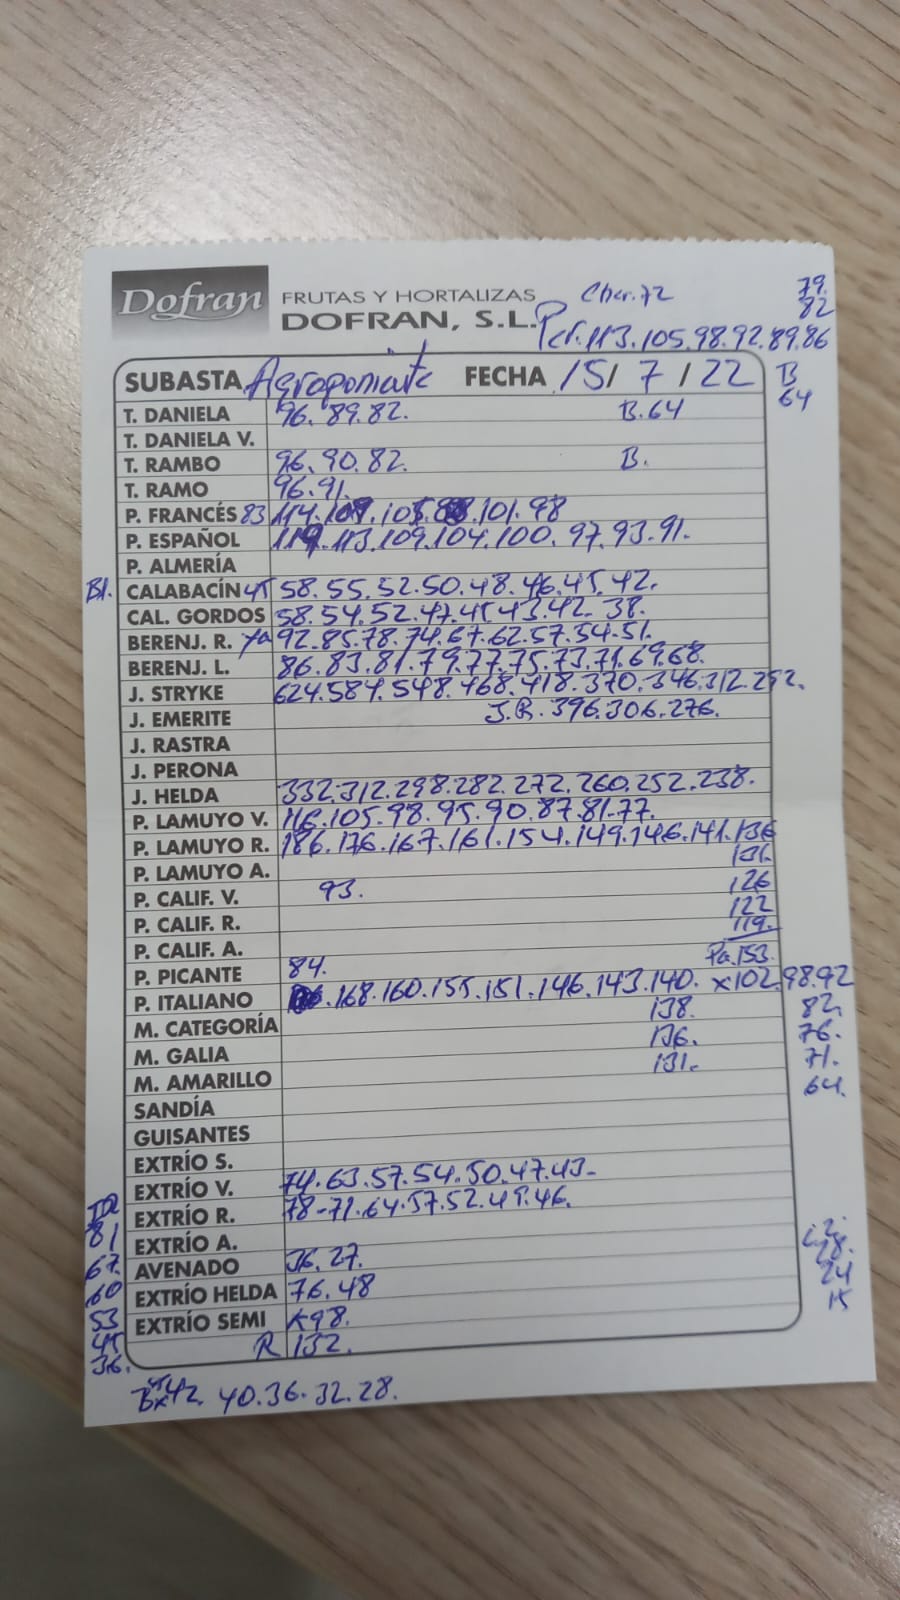 Dofran FRUTAS Y HORTALIZAS Cher. 72 79.
DOFRAN, S.L. 82
Per. 113.105.98.92.89.86
SUBASTA Agroponiente FECHA 15/ 7 / 22 B
64
T. DANIELA 96. 89.82. B.64
T. DANIELA V.
T. RAMBO 96. 90.82. B.
T. RAMO 96.91.
P. FRANCÉS 83 114.109.105. .101.98
P. ESPAÑOL 119.113.109.104.100. 97.93.91.
P. ALMERÍA
Bl. CALABACÍN 45 58.55.52.50.48.46.45.42.
CAL. GORDOS 58.54.52.47.45.43.42. 38.
BERENJ. R. 92.85.78.74.67.62.57.54.51.
BERENJ. L. 86.83.81.79.77.75.73.71.69.68.
J. STRYKE 624.584.548.468.418.370.346.312.292.
J. EMERITE J.R. 396.306.276.
J. RASTRA
J. PERONA
J. HELDA 332.312.298.282.272.260.252.238.
P. LAMUYO V. 116.105.98.95.90.87.81-77.
P. LAMUYO R. 186.176.167.161.154.149.146.141.136
P. LAMUYO A. 131.
P. CALIF. V. 93. 126
P. CALIF. R. 122
119.
P. CALIF. A. Pa.153.
P. PICANTE 84.
P. ITALIANO .168.160.155.151.146.143.140. x102.98.92
M. CATEGORÍA 138. 82.
M. GALIA 136. 76.
M. AMARILLO 131. 71.
SANDÍA 64.
GUISANTES
EXTRÍO S.
EXTRÍO V. 74.63.57.54.50.47.43-
EXTRÍO R. 78-71.64.57.52.49.46.
81 EXTRÍO A.
67. AVENADO 36.27. 28.
60 EXTRÍO HELDA 76.48 24
53 EXTRÍO SEMI 98. 15
45
36. R 132.
42. 40.36.32.28.